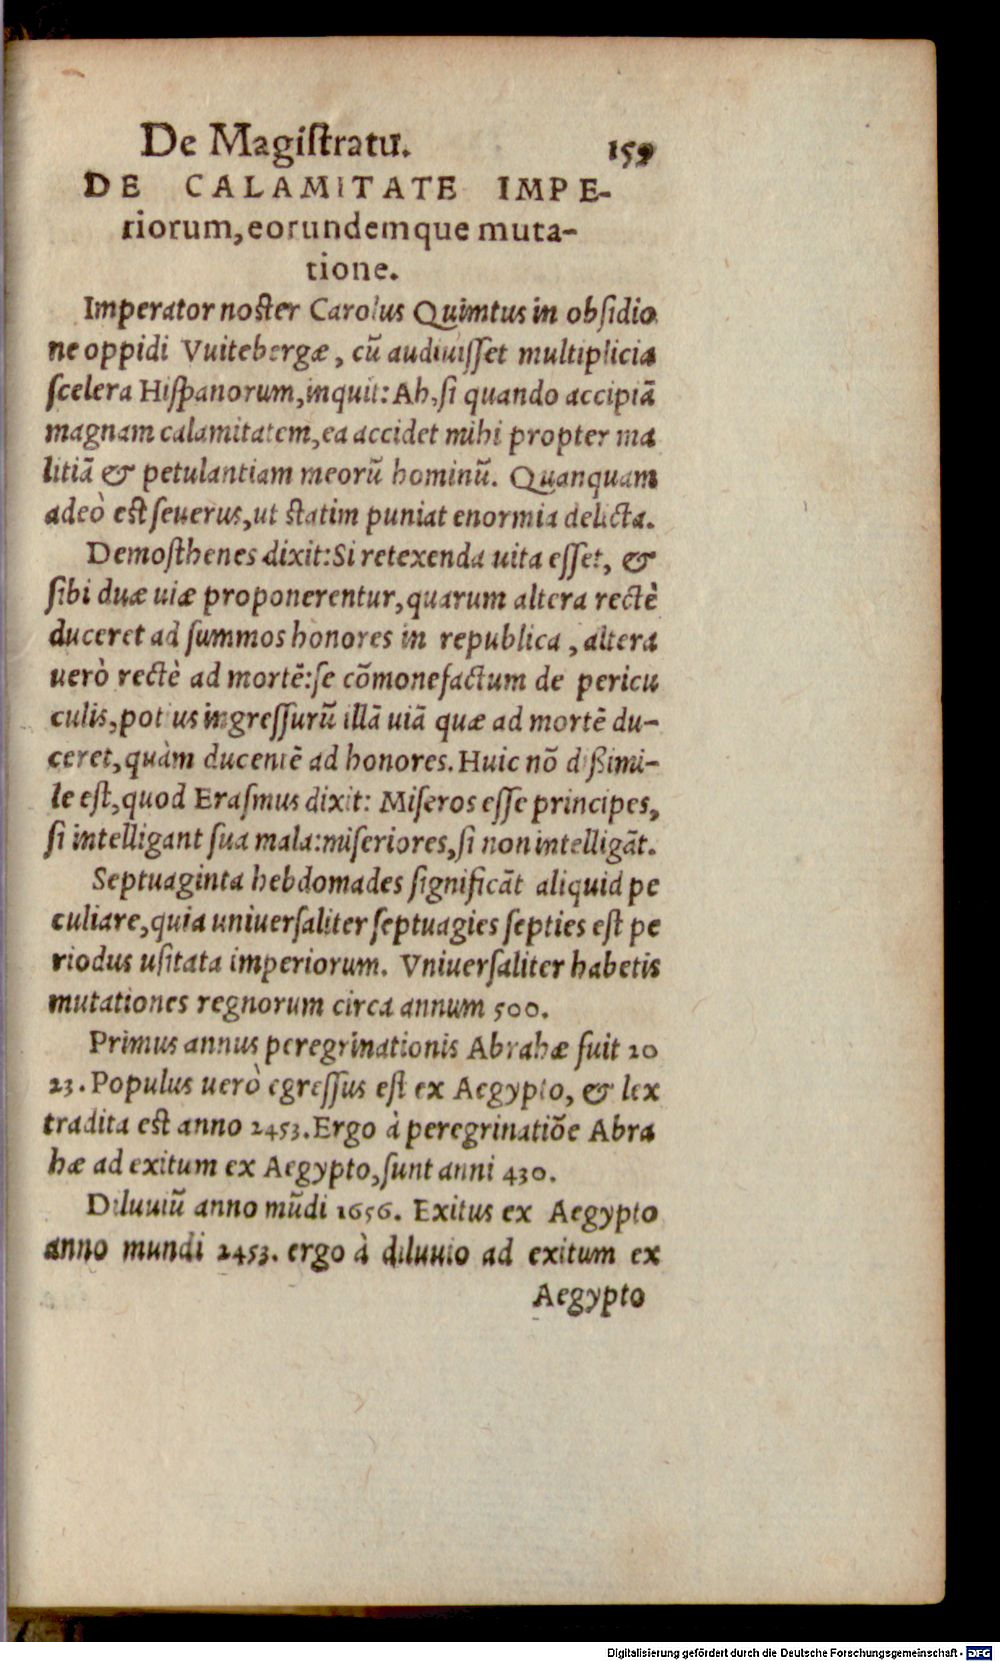 De Magistratu. 159
DE CALAMITATE IMPE-
riorum, eorundemque muta-
tione.
Imperator noster Carolus Quimtus in obsidio
ne oppidi Vuitebergæ, cū audiuisset multiplicia
scelera Hispanorum, inquit: Ah, si quando accipiā
magnam calamitatem, ea accidet mihi propter ma
litiā & petulantiam meorū hominū. Quanquam
adeò est seuerus, ut statim puniat enormia delicta.
Demosthenes dixit: Si retexenda uita esset, &
sibi duæ uiæ proponerentur, quarum altera rectè
duceret ad summos honores in republica, altera
uerò rectè ad mortē: se cōmonefactum de pericu
culis, potius ingressurū illā uiā quæ ad mortē du-
ceret, quàm ducentē ad honores. Huic nō dißimi-
le est, quod Erasmus dixit: Miseros esse principes,
si intelligant sua mala: miseriores, si non intelligāt.
Septuaginta hebdomades significāt aliquid pe
culiare, quia uniuersaliter septuagies septies est pe
riodus usitata imperiorum. Vniuersaliter habetis
mutationes regnorum circa annum 500.
Primus annus peregrinationis Abrahæ fuit 20
23. Populus uerò egressus est ex Aegypto, & lex
tradita est anno 2453. Ergo à peregrinatiōe Abra
hæ ad exitum ex Aegypto, sunt anni 430.
Diluuiū anno mūdi 1656. Exitus ex Aegypto
anno mundi 2453. ergo à diluuio ad exitum ex
Aegypto
Digitalisierung gefördert durch die Deutsche Forschungsgemeinschaft - DFG